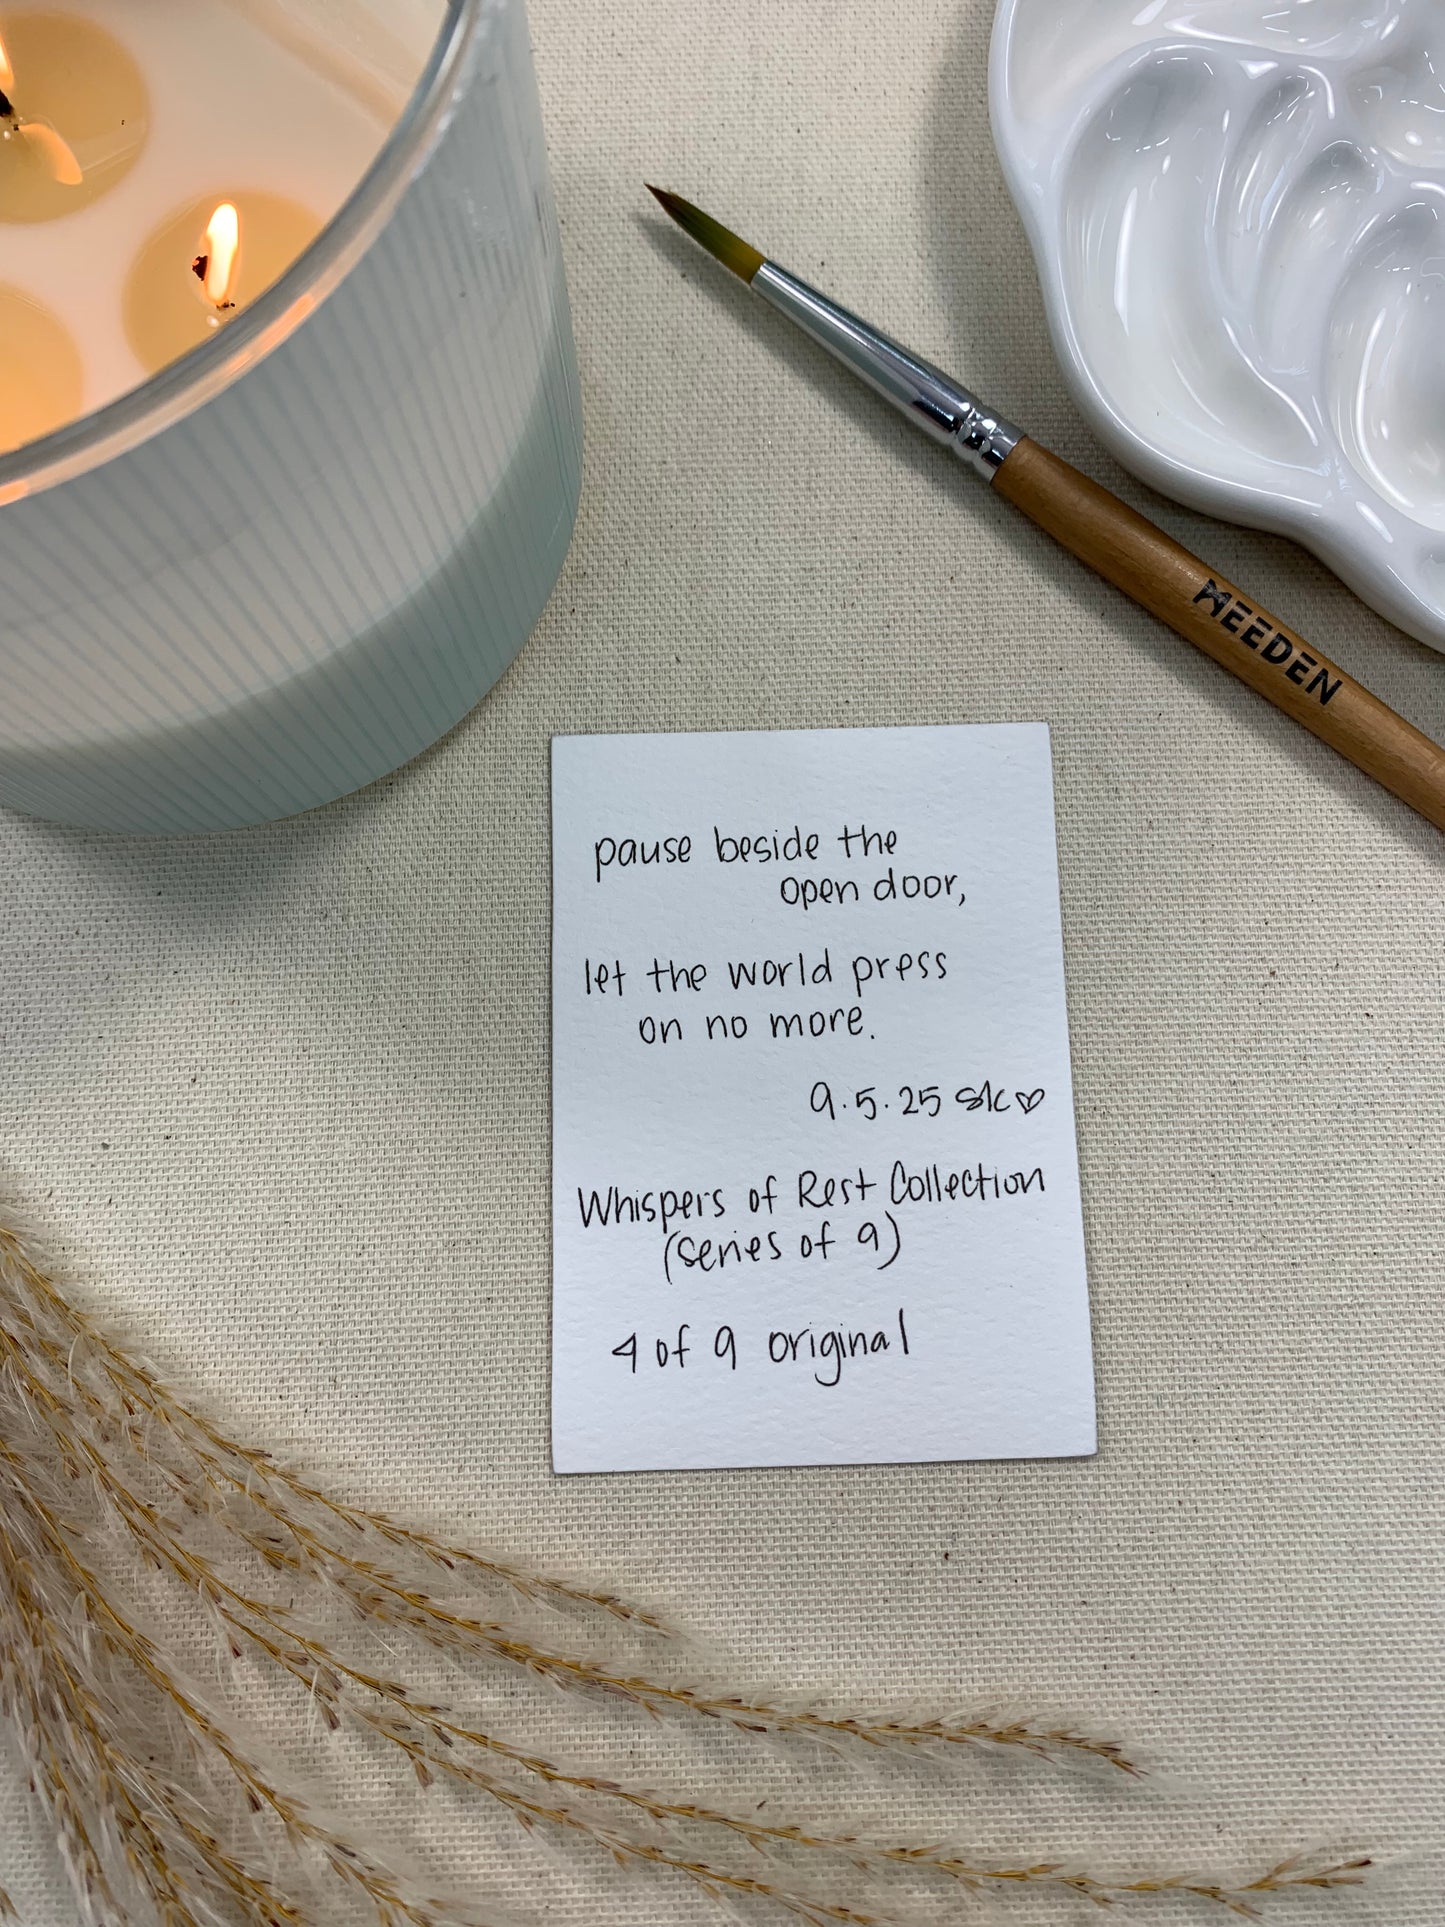 MEEDEN
pause beside the
open door,
let the world press
on no more.
9.5.25 slc♡
Whispers of Rest Collection
(series of 9)
4 of 9 original